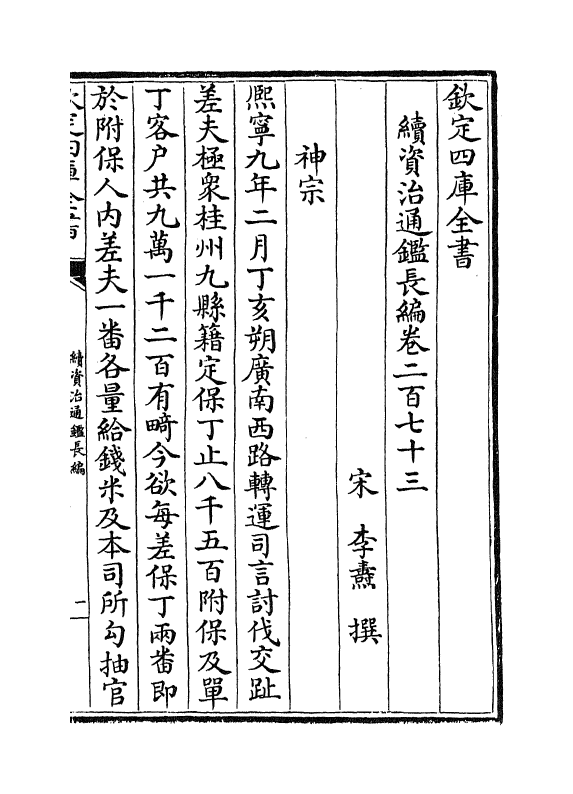 欽定四庫全書
續資治通鑑長編卷二百七十三
宋 李燾 撰
神宗
熈寧九年二月丁亥朔廣南西路轉運司言討伐交趾
差夫極衆桂州九縣籍定保丁止八千五百附保及單
丁客户共九萬一千二百有畸今欲每差保丁兩番即
於附保人内差夫一番各量給錢米及本司所勾抽官
欽定四庫全書
續資治通鑑長編
二